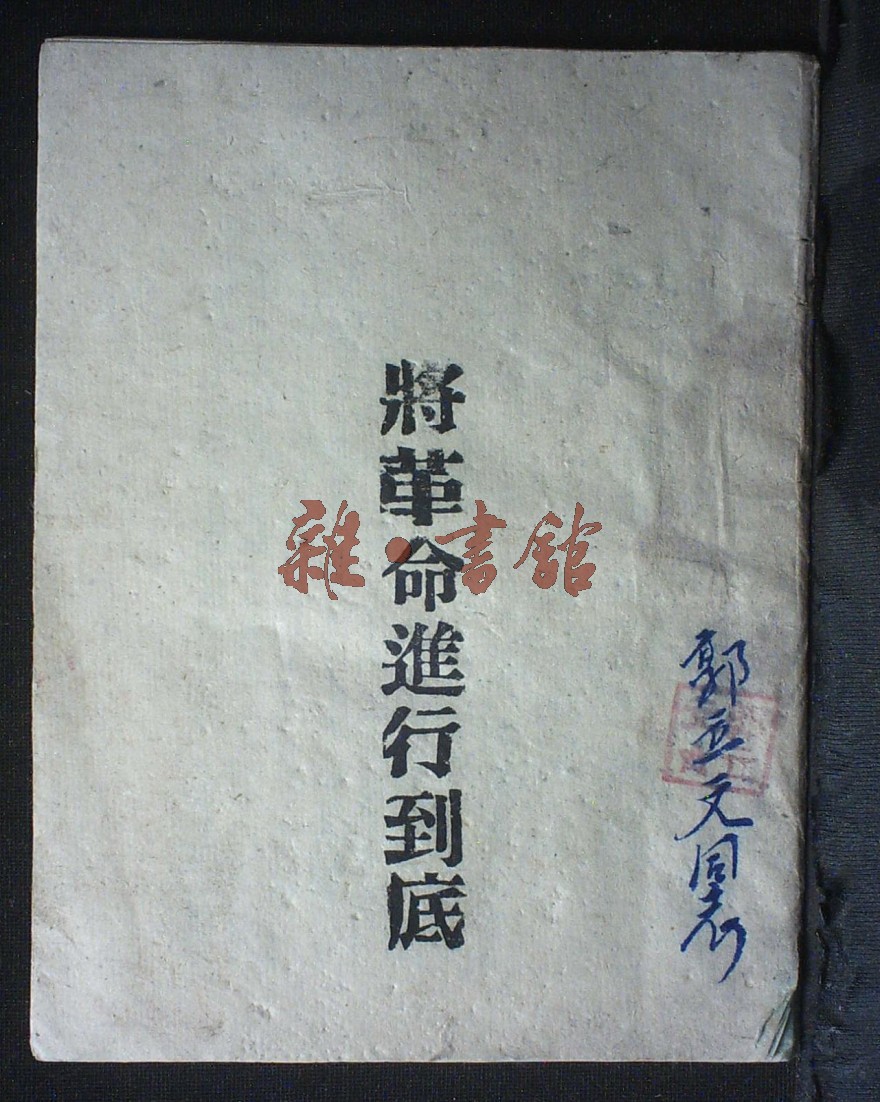 將革命進行到底
雜·書館
郭立文同志